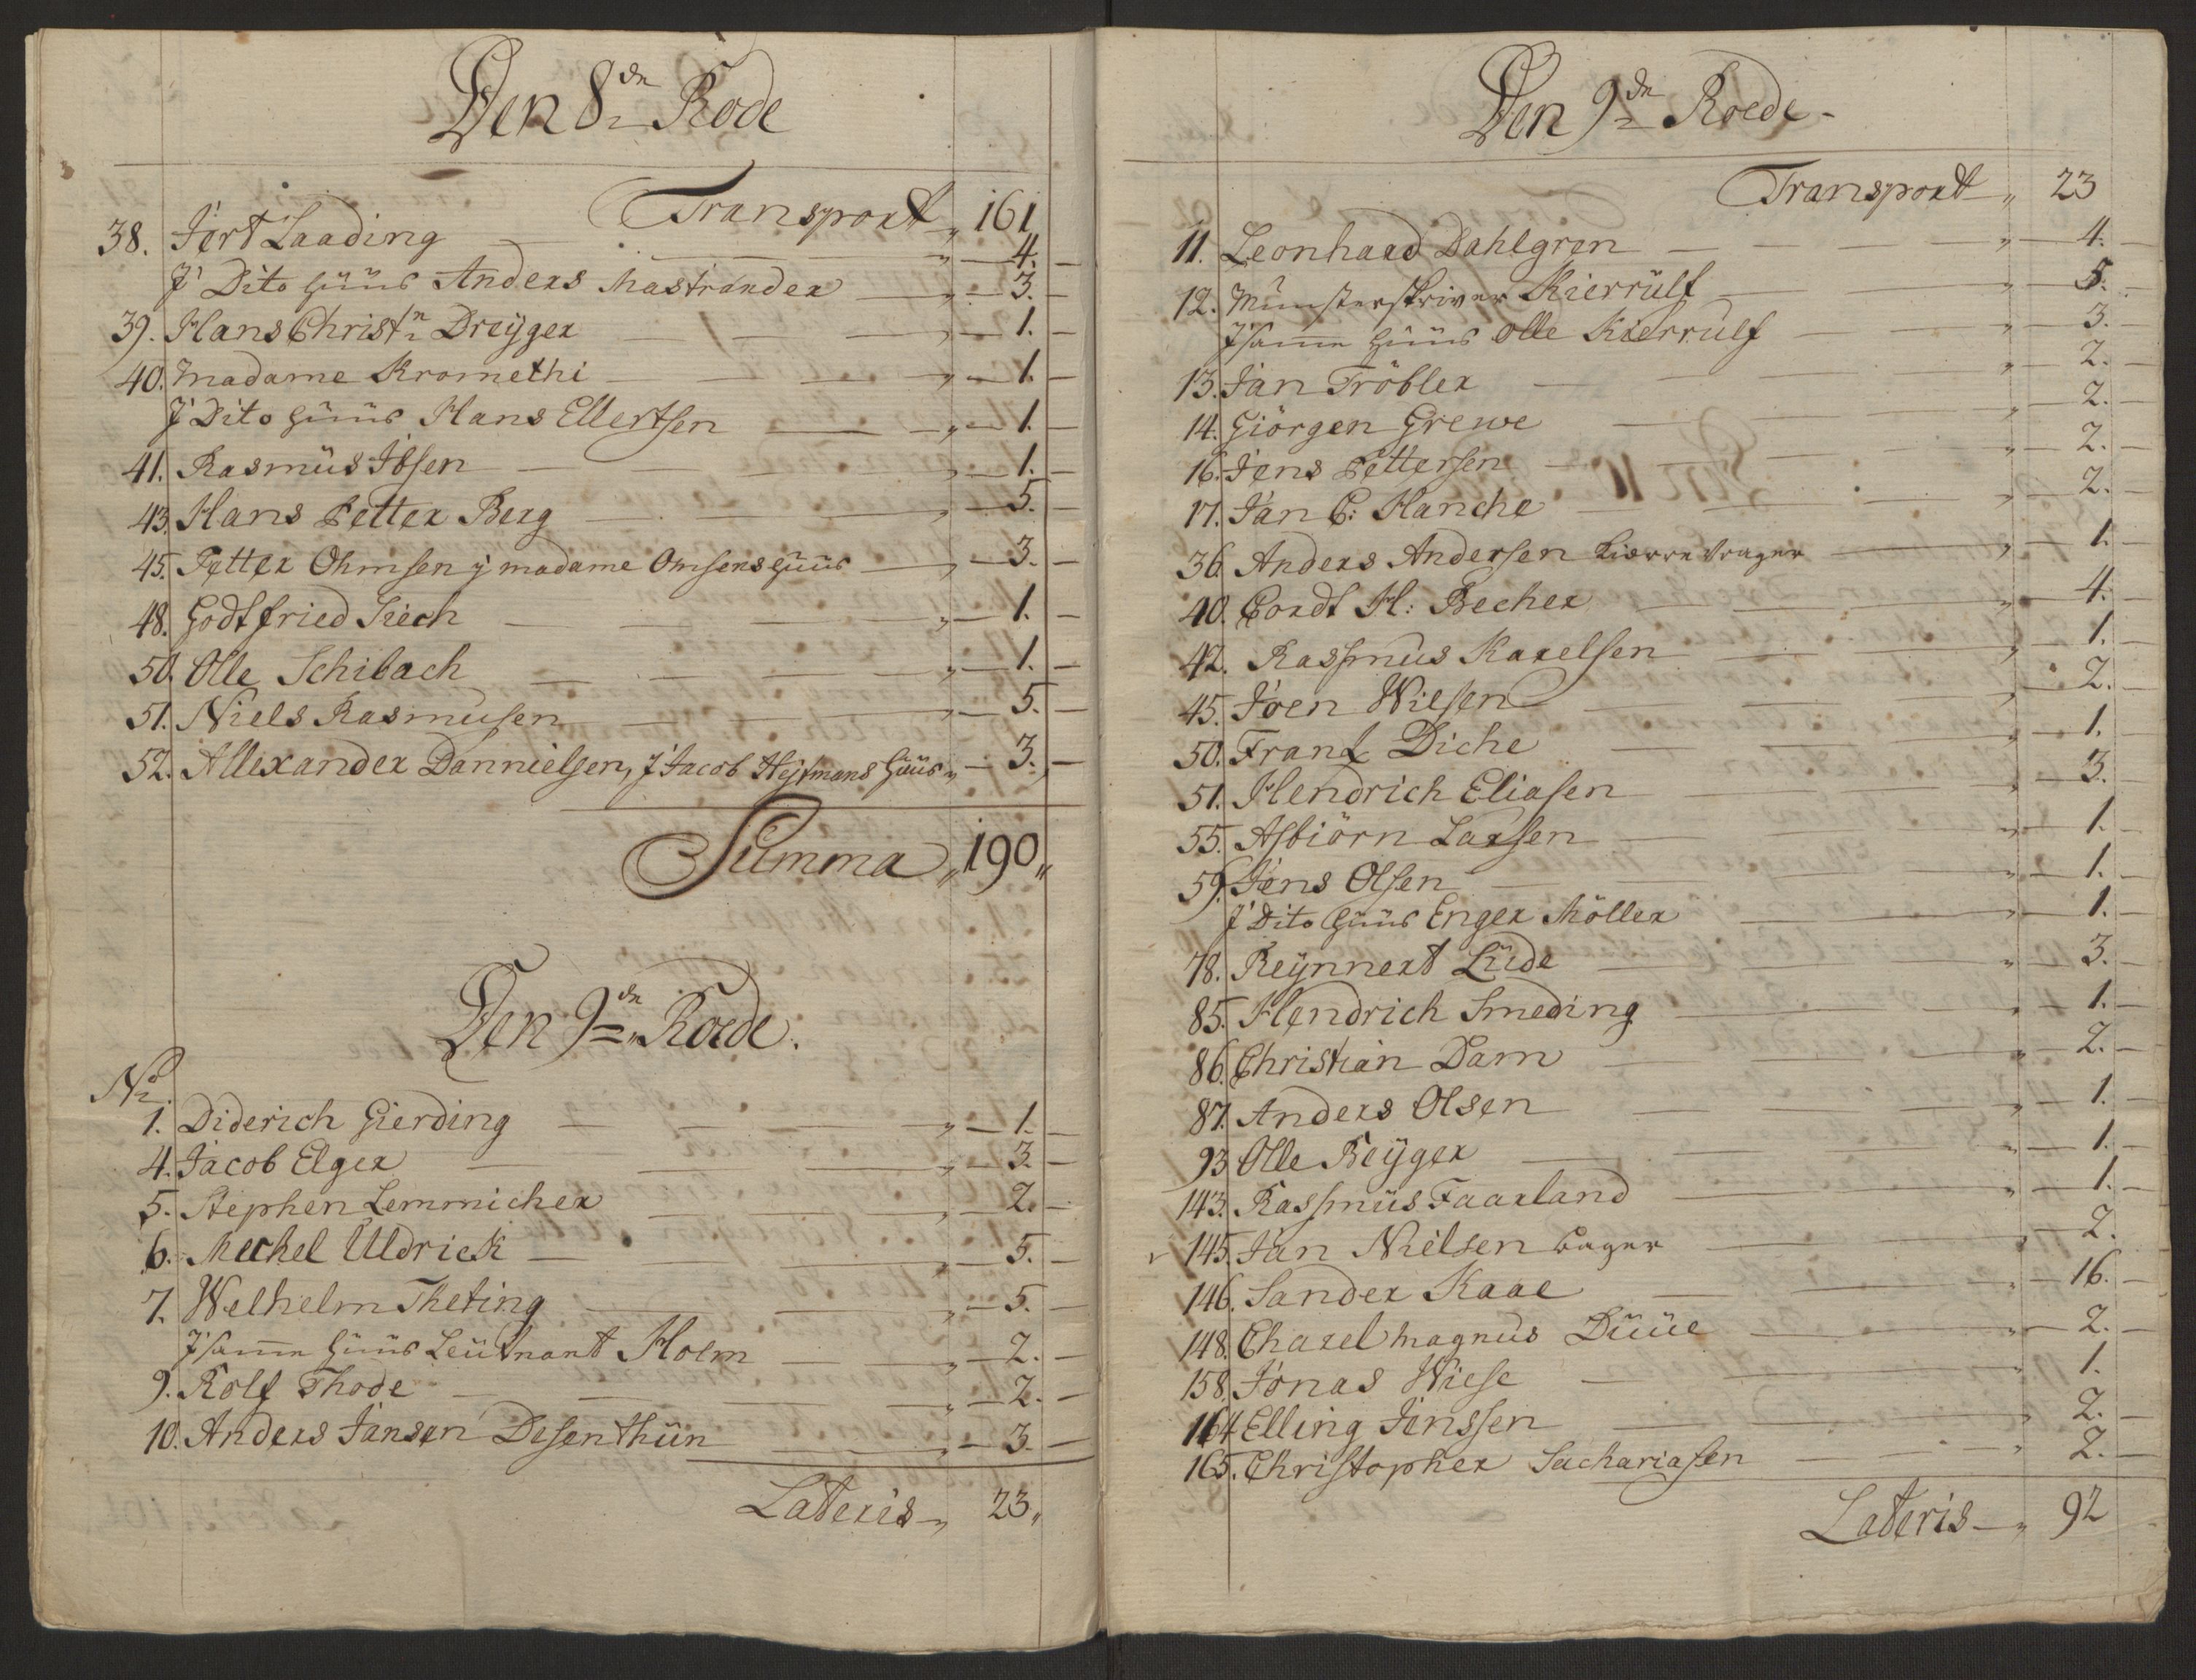 Den 8de Rode
Transport „ 161
38. Jert Laading „ 4. —
J Dito Hüüs Anders Mastrander „ 3. —
39. Hans Christn Dreÿger „ 1. —
40. Madame Kromethi „ 1. —
J Dito Hüüs Hans Ellertsen „ 1. —
41. Rasmüs Ibsen „ 1. —
43. Hans Petter Berg „ 5. —
45. Petter Ohmsen j madame Omsens Hüüs „ 3. —
48. Godtfried Siech „ 1. —
50. Olle Schibach „ 1. —
51. Niels Rasmusen „ 5. —
52. Allexander Dannielsen, J Jacob Heÿtmans Hüüs „ 3. —
Summa „ 190 „
Den 9de Roede.
No.
1. Diderich Gierding „ 1. —
4. Jacob Elger „ 3. —
5. Stephen Lemmicher „ 2. —
6. Mechel Uldrick „ 5. —
7. Welhelm Theting „ 5. —
J samme Hüüs Leütnant Holm „ 2. —
9. Rolf Thode „ 2. —
10. Anders Jansen Desenthün „ 3. —
Lateris „ 23 „
Den 9de Roede.
Transport „ 23
11. Leonhard Dahlgren „ 4. —
12. Münsterskriver Kierrülf „ 5. —
J samme Hüüs Olle Kierrulf „ 3. —
13. Jan Tröbler „ 2. —
14. Giörgen Grewe „ 2. —
16. Jens Pettersen „ 2. —
17. Jan C: Hanche „ 2. —
36. Anders Andersen Kiærredrager „ 1. —
40. Cordt H: Becher „ 4. —
42. Rassmus Karelsen „ 1. —
45. Joen Wilsen „ 2. —
50. Frantz Diche „ 1. —
51. Hendrich Eliasen „ 3. —
55. Asbiörn Larsen „ 1. —
59. Jens Olsen „ 1. —
J Dito Hüüs Enger Möller „ 1. —
78. Reÿnnert Lüde „ 3. —
85. Hendrich Smeding „ 1. —
86. Christian Dam „ 2. —
87. Anders Olsen „ 1. —
93 Olle Beÿger „ 1. —
143. Rassmüs Faarland „ 1. —
145. Jan Nielsen Bager „ 2. —
146. Sander Kaae „ 16. —
148. Charel Magnus Düüe „ 2. —
158. Jonas Wiese „ 1. —
164 Elling Jenssen „ 2. —
165. Christopher Sachariasen „ 2. —
Lateris „ 92